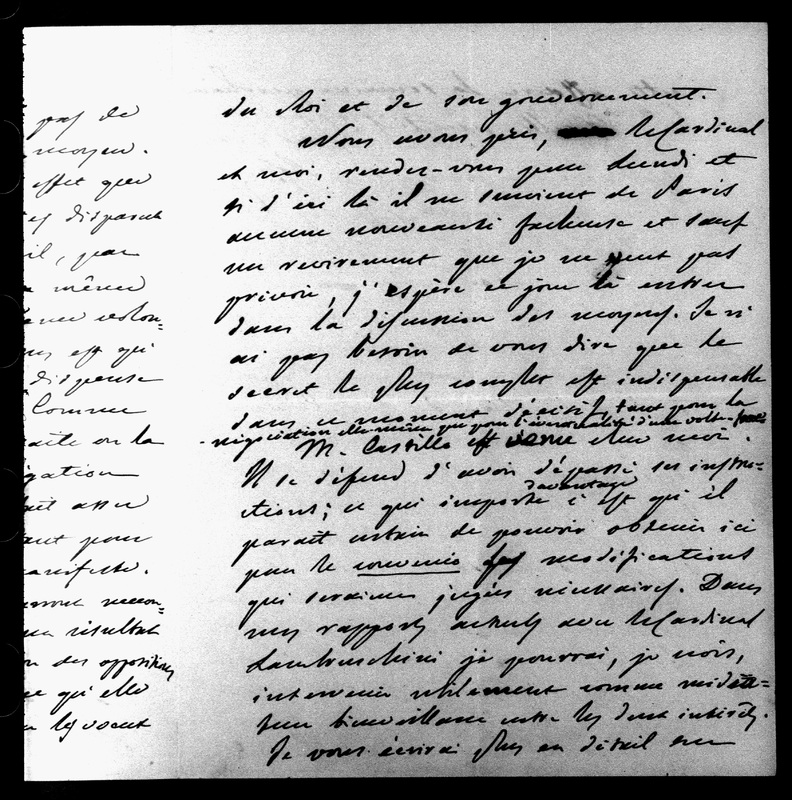 pas de
moyen.
effet que
es disparut
il, par
même
dispense
Comme
gation
ait assez
tant pour
manifeste.
résultat
des oppositions
ce qu'elle
du Roi et de son gouvernement.
Nous avons pris, le Cardinal
et moi, rendez-vous pour Lundi et
si d'ici là il ne survient de Paris
aucune nouveauté fâcheuse et sauf
un revirement que je ne peut pas
prévoir, j'espère ce jour là entrer
dans la discussion des moyens. Je n'
ai pas besoin de vous dire que le
secret le plus complet est indispensable
dans ce moment décisif, tant pour la
négociation elle-même que pour l'éventualité d'une volte-face
M. Castillo est venu chez moi.
Il se défend d'avoir dépassé ses instru-
ctions; ce qui importe davantage c'est qu'il
paraît certain de pouvoir obtenir ici
pour le convenio les modifications
qui seraient jugées nécessaires. Dans
mes rapports actuels avec le Cardinal
Lambruschini je pourrai, je crois,
intervenir utilement comme média-
teur bienveillant entre les deux intérêts.
Je vous écrirai plus en détail sur